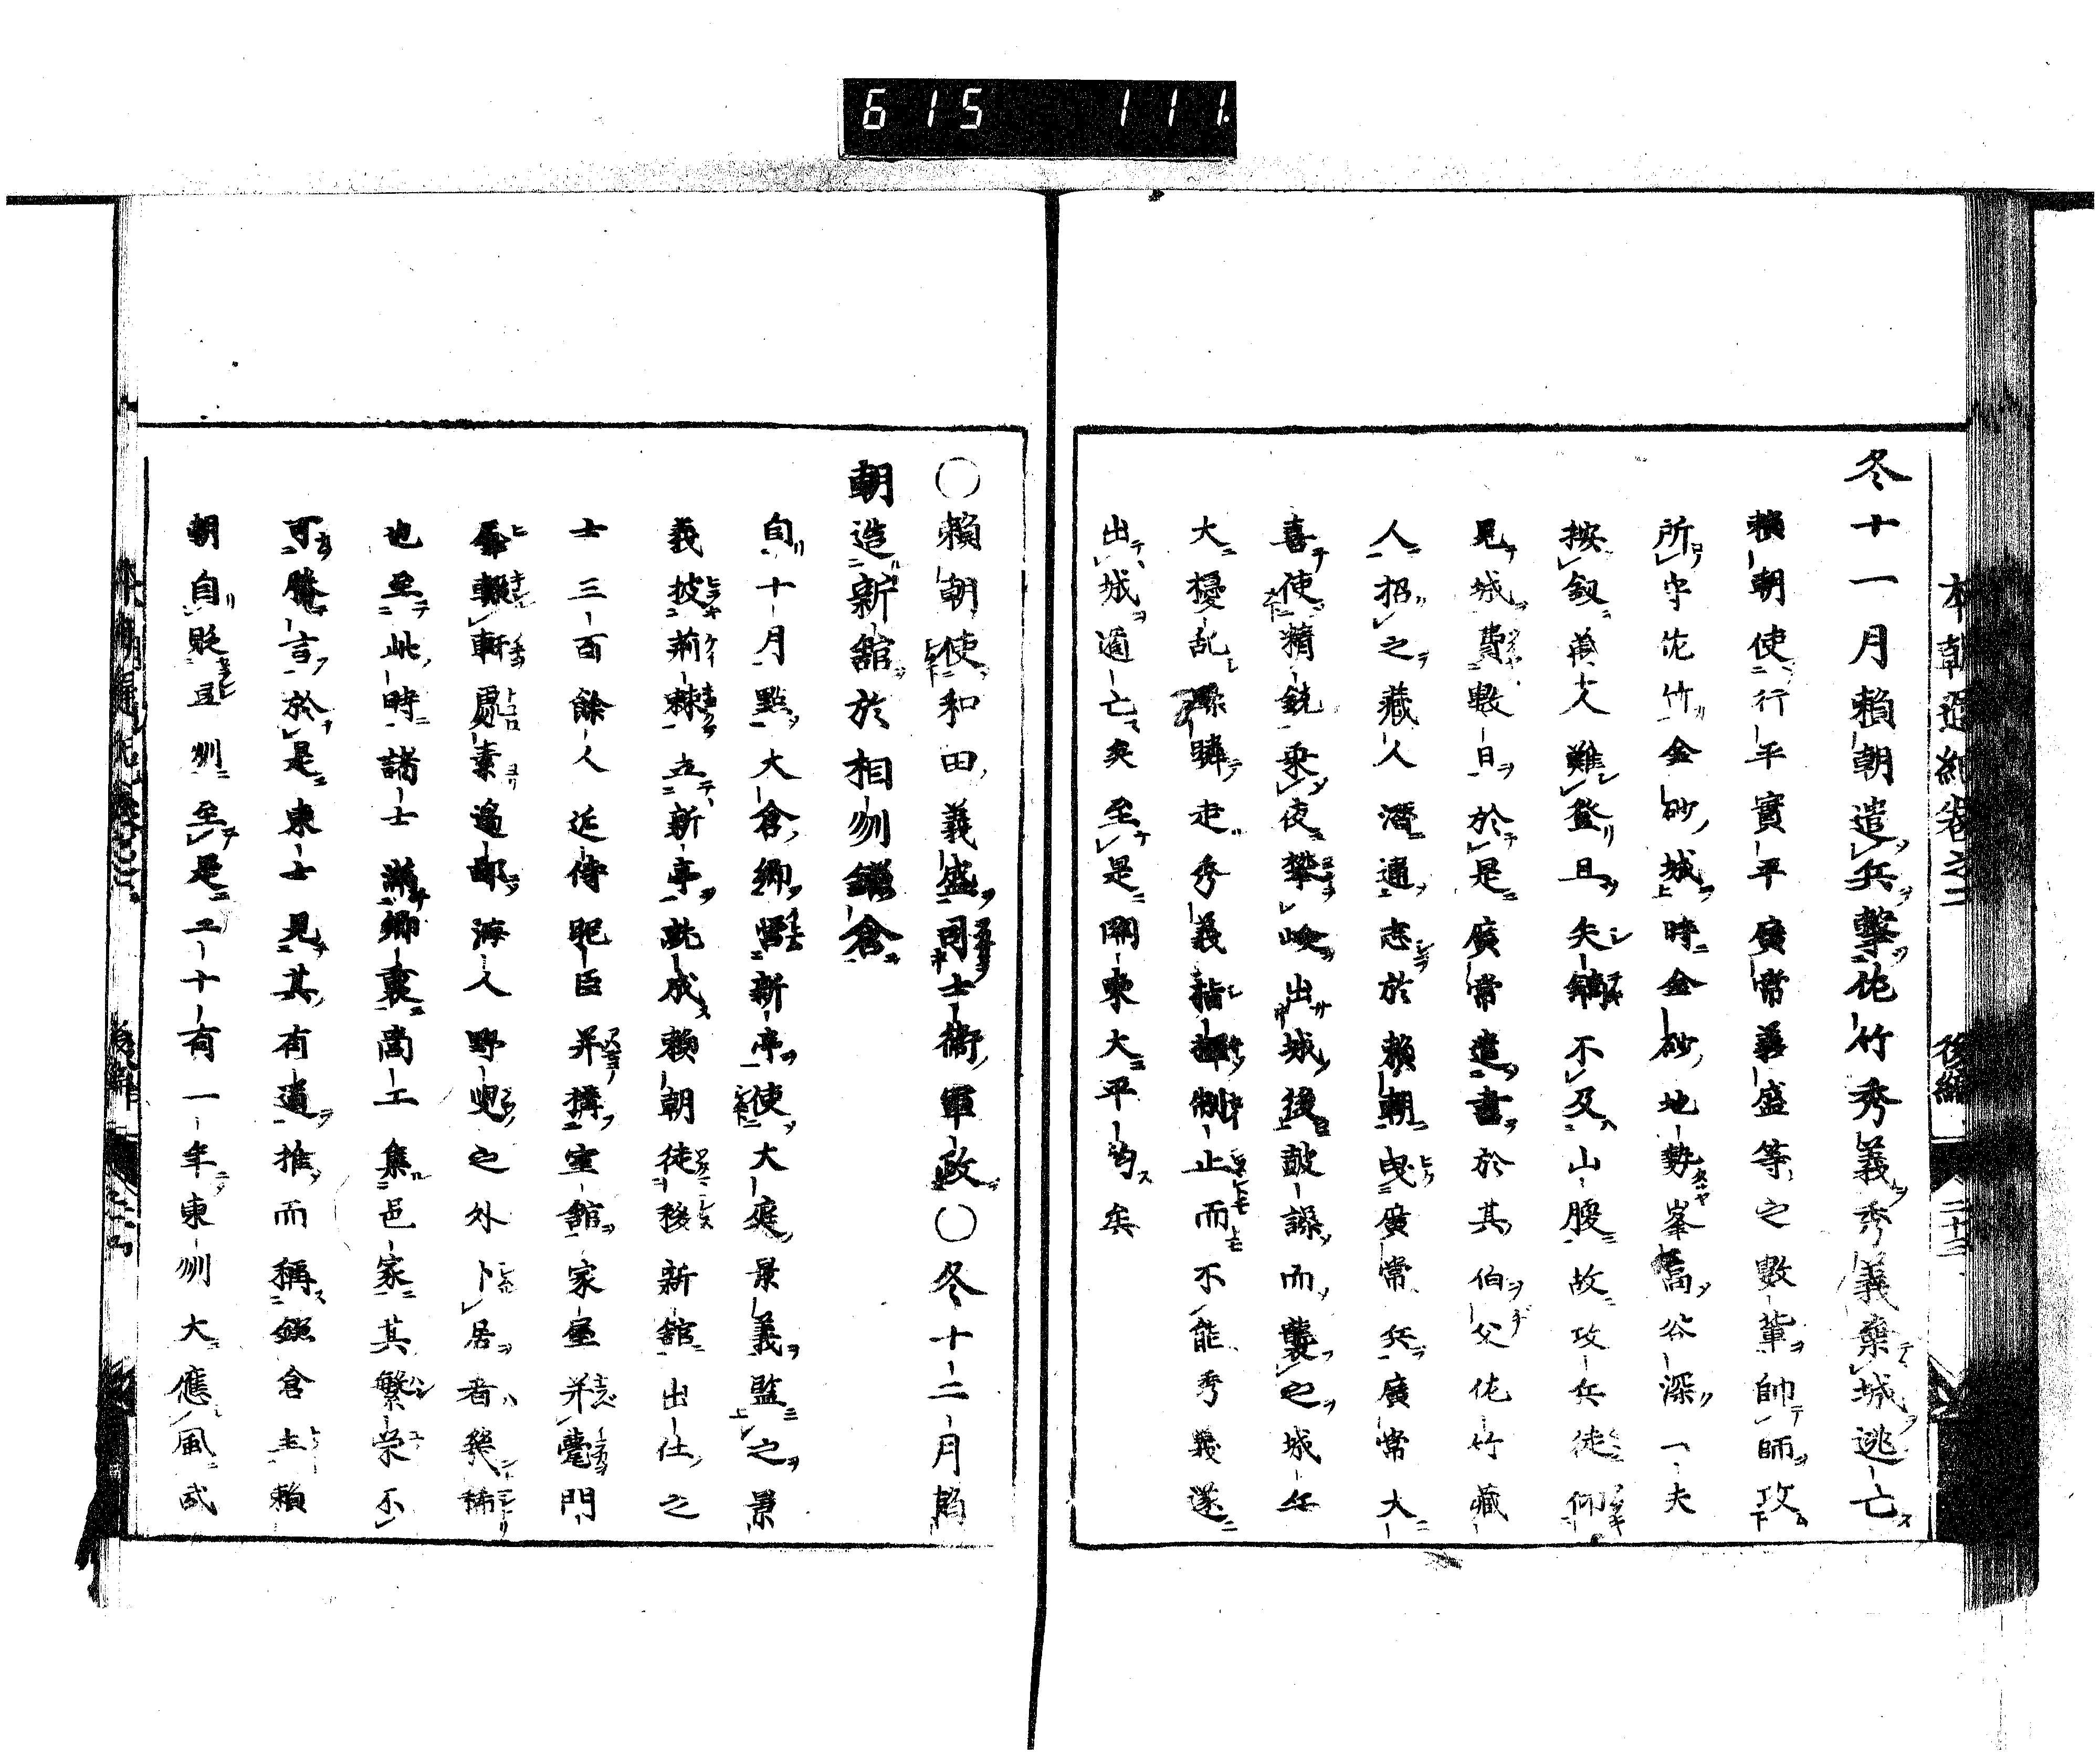 615 111
本朝通紀卷之二 後編 二十三
冬十一月賴朝遣兵擊佐竹秀義秀義棄城逃亡
賴朝使行平實平廣常義盛等之數輩帥師攻
所守佐竹金砂城時金砂地勢峯高谷深一夫
按劔萬人難登且矢鏃不及山腹故攻兵徒仰
見城費數日於是廣常遣書於其伯父佐竹藏
人招之藏人潛通志於賴朝曳廣常兵廣常大
喜使精銳乘夜攀嶮出城後鼓譟而襲之城兵
大擾乱驟走秀義指揮制止而不能秀義遂
出城遁亡矣至是關東大平均矣
〇賴朝使和田義盛司士衛軍政〇冬十二月賴
朝造新舘於相州鎌倉
自十月點大倉鄉營新亭使大庭景義監之景
義披荊棘立新亭既成賴朝徒移新舘出仕之
士三百餘人近侍昵臣并構室舘家屋并甍門
輾軒處素邊鄙海人野叟之外卜居者稀
也至此時諸士滿鄉裏商工集邑家其繁栄不
可勝言於是東士見其有道推而稱鎌倉主賴
朝自貶豆州至是二十有一年東州大應風武